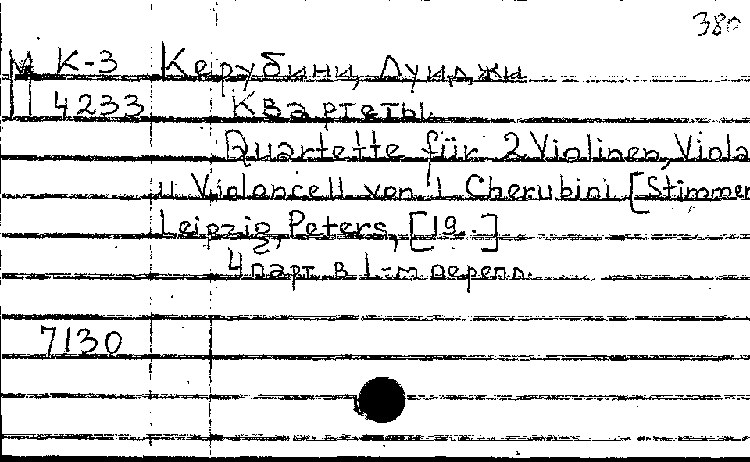 380
М К-3 Керубини, Луиджи
II 4233 Квартеты.
Quartette für 2 Violinen, Viola
u Violoncell von L Cherubini [Stimmen
Leipzig, Peters, [19..]
4 парт. в 1-м перепл.
7130